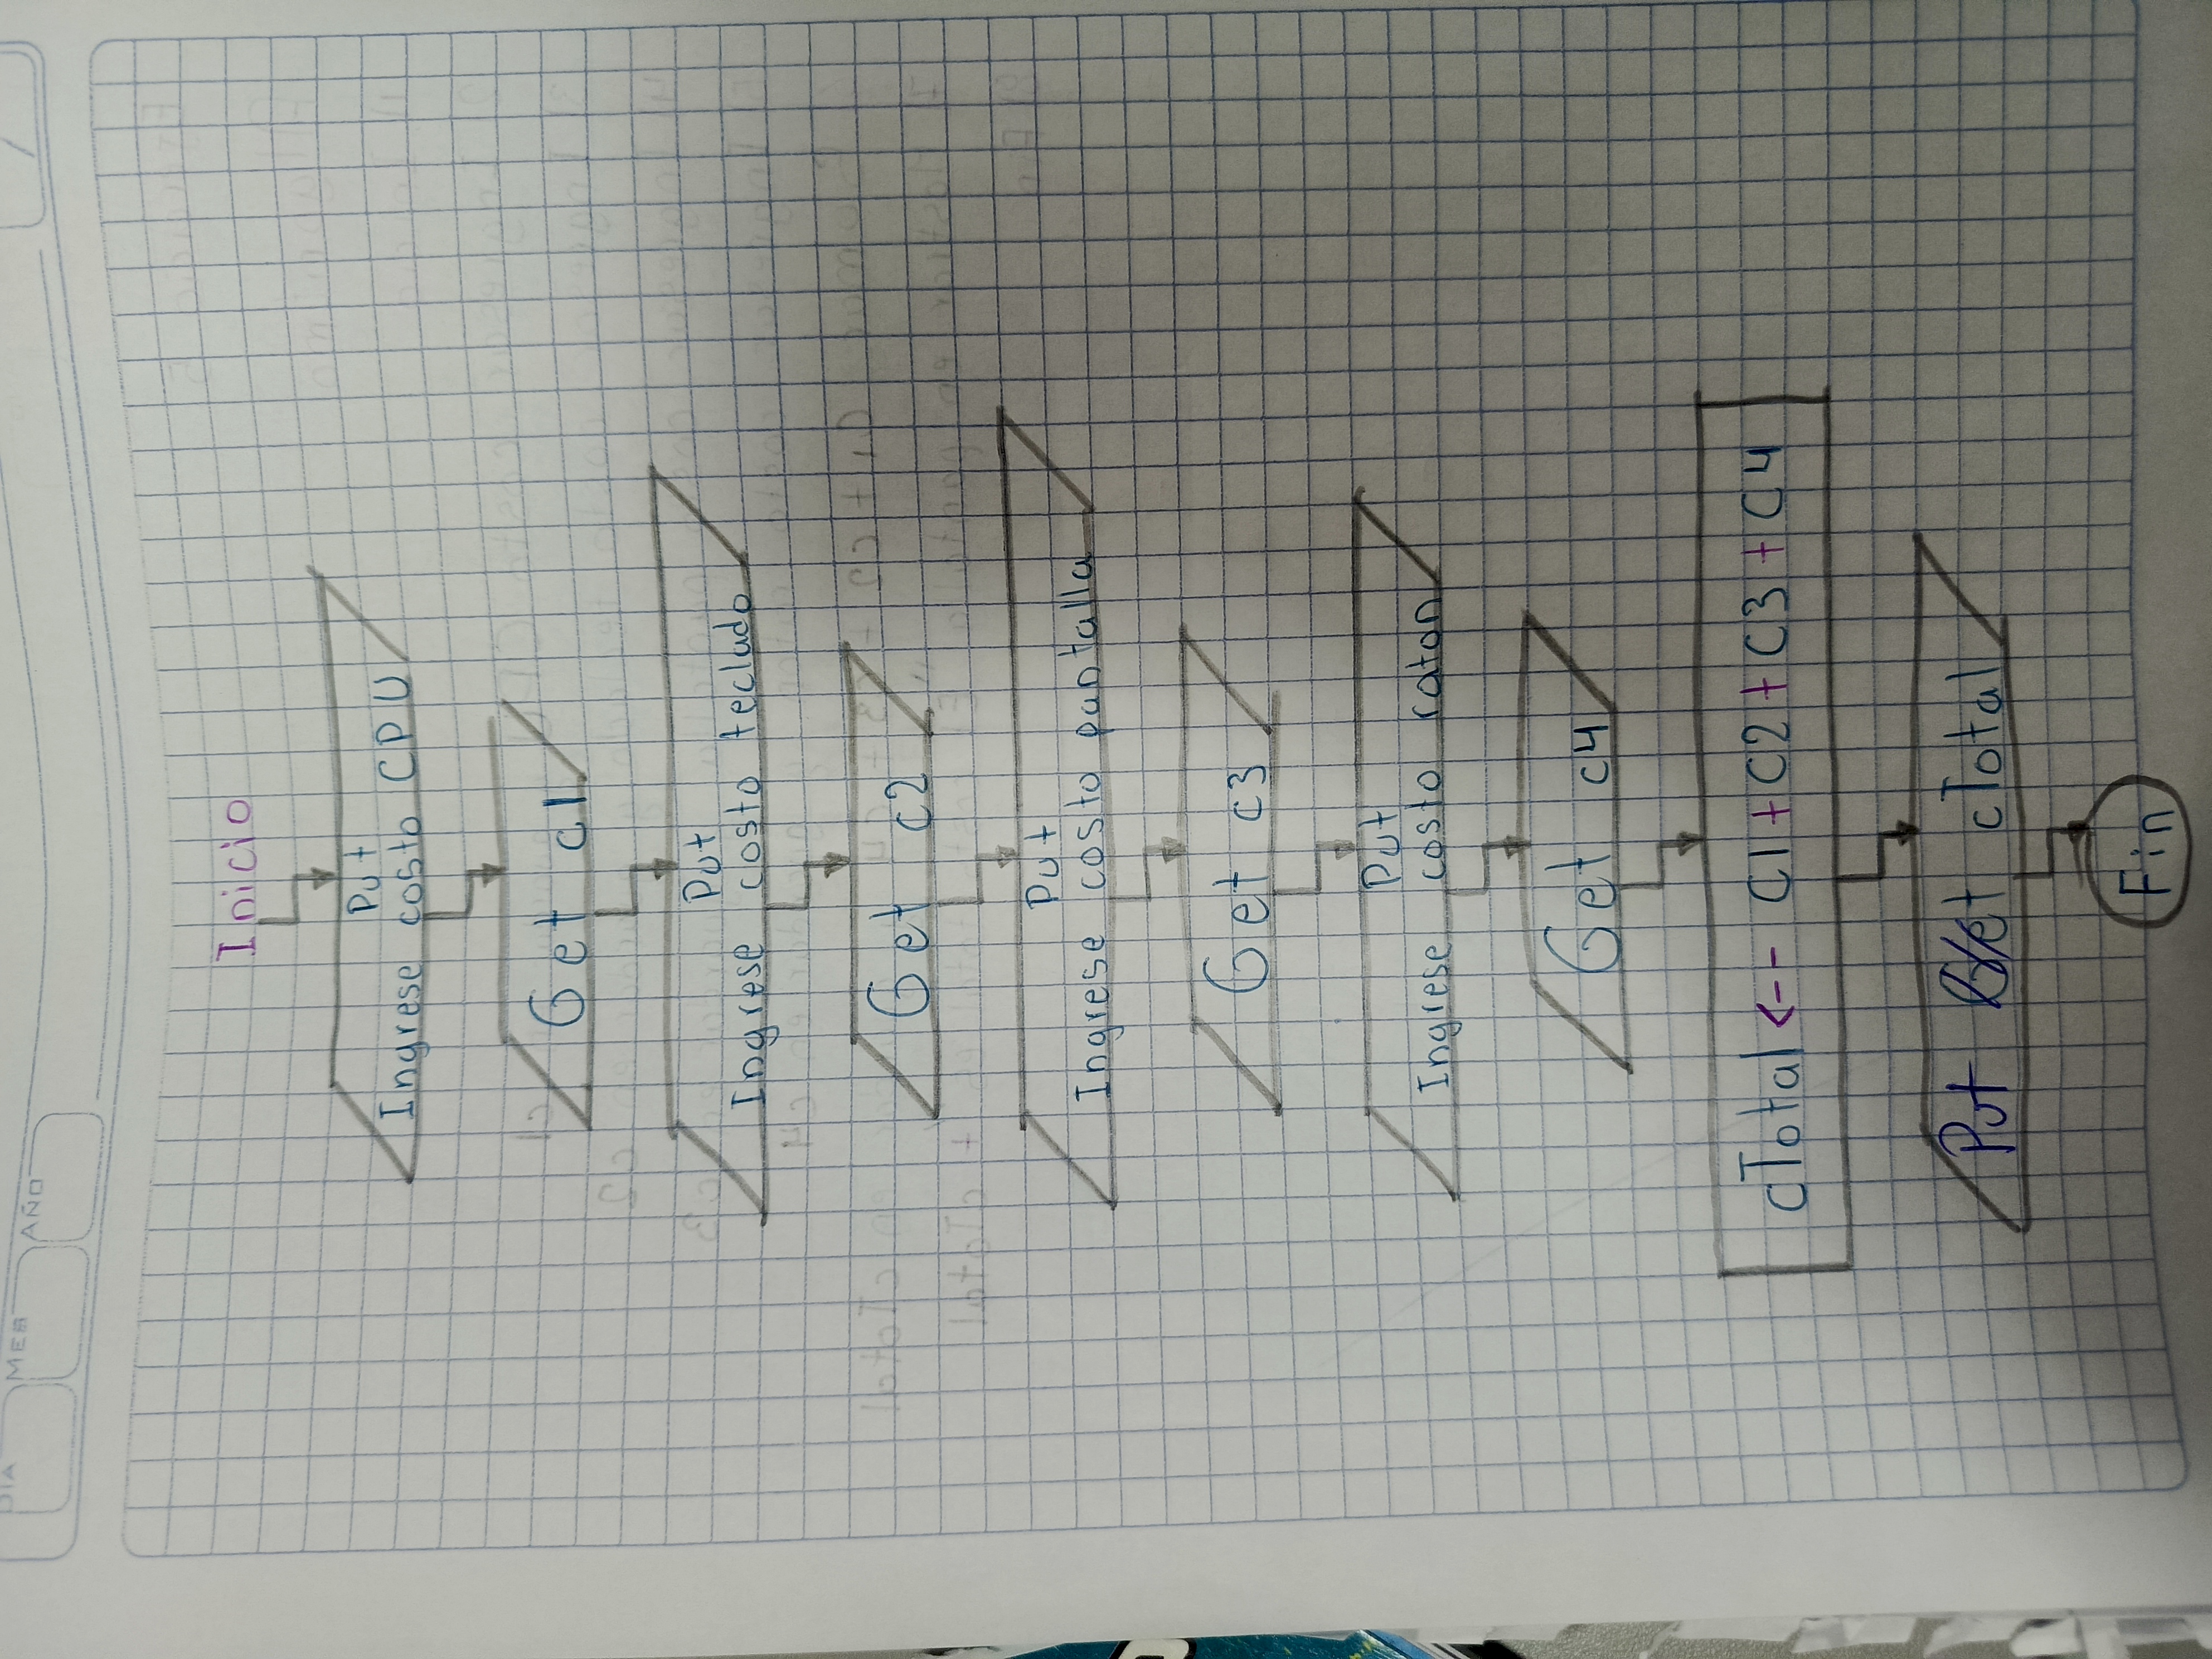 DIA MES AÑO
Inicio
Put
Ingrese costo CPU
Get c1
Put
Ingrese costo teclado
Get c2
Put
Ingrese costo pantalla
Get c3
Put
Ingrese costo raton
Get c4
cTotal <-- C1+C2+C3+C4
Put cTotal
Fin